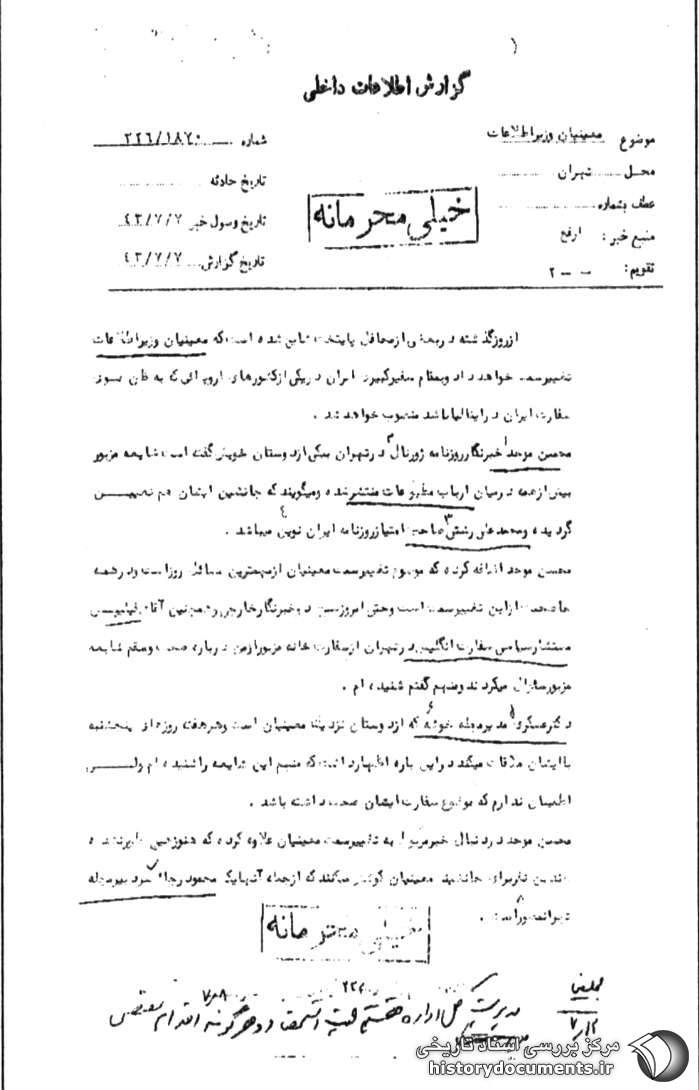 گزارش اطلاعات داخلی
موضوع معینیان وزیر اطلاعات
محل تهران
عطف بشماره
منبع خبر : ارفع
تقویم : ۲ - -
شماره ۳۲۶/۱۸۷۰
تاریخ حادثه
تاریخ وصول خبر ۴۳/۷/۷
تاریخ گزارش ۴۳/۷/۷
خیلی محرمانه
از روز گذشته در بعضی از محافل پایتخت شایع شده است که معینیان وزیر اطلاعات
تغییر سمت خواهد داد و بمقام سفیر کبیری ایران در یکی از کشورهای اروپائی که به ظن قوی
سفارت ایران در ایتالیا باشد منصوب خواهد شد .
محسن موحد۱ خبرنگار روزنامه ژورنال۲ در تهران بیکی از دوستان خویش گفته است شایعه مزبور
بیش از همه در میان ارباب مطبوعات منتشر شده و میگویند که جانشین ایشان هم تعیین
گردیده و محمد علی رشتی۳ صاحب امتیاز روزنامه ایران نوین۴ میباشد .
محسن موحد اضافه کرده که موضوع تغییر سمت معینیان از مهمترین مسائل روز است و در همه
جا صحبت از این تغییر سمت است و حتی امروز سی دو خبرنگار خارجی و همچنین آقای فیلیپس
مستشار سیاسی سفارت انگلیس در تهران از سفارت خانه مزبور از من درباره صحت و سقم شایعه
مزبور سئوال میکردند و منهم گفتم شنیده ام .
دکتر عسگری۵ مدیر مجله خوشه۶ که از دوستان نزدیک معینیان است و هر هفته روزهای پنجشنبه
با ایشان ملاقات میکند در این باره اظهار داشت که منهم این شایعه را شنیده ام ولی
اطمینان ندارم که موضوع سفارت ایشان صحت داشته باشد .
محسن موحد در دنبال خبر مربوط به تغییر سمت معینیان علاوه کرده که هنوز هیچی ظاهر نشده
چندین نفر برای جانشینی معینیان کوشش میکنند که از جمله آنها یکی محمود رجاء۷ سردبیر مجله
تهرانمصور۸ است .
خیلی محرمانه
مدیریت کل اداره هشتم جهت استحضار و هرگونه اقدام مقتضی
۳۲۶
۷/۸
۷/۱۲
مرکز بررسی اسناد تاریخی
historydocuments.ir